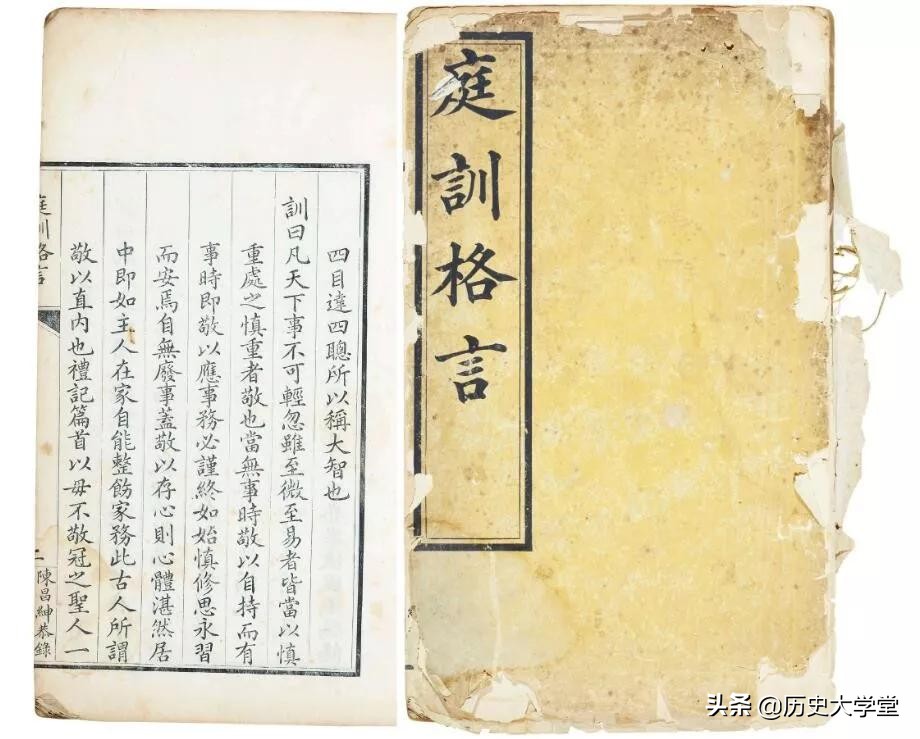 庭訓格言
四目達四聰所以稱大智也
訓曰凡天下事不可輕忽雖至微至易者皆當以慎
重處之慎重者敬也當無事時敬以自持而有
事時即敬以應事務必謹終如始慎修思永習
而安焉自無廢事蓋敬以存心則心體湛然居
中即如主人在家自能整飭家務此古人所謂
敬以直內也禮記篇首以毋不敬冠之聖人一
庭訓格言
二
陳昌紳恭錄
头条 @历史大学堂